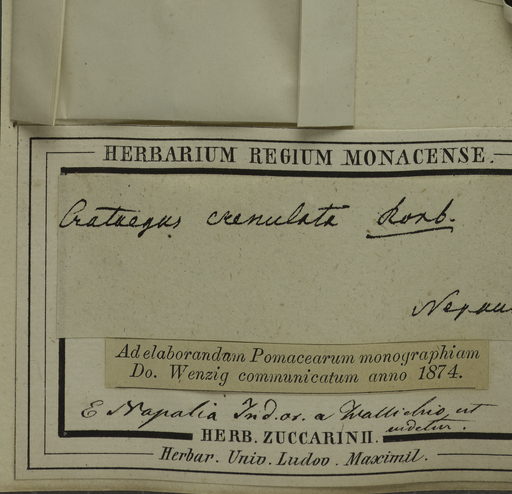 HERBARIUM REGIUM MONACENSE.
Crataegus crenulata Roxb.
Ad elaborandam Pomacearum monographiam
Do. Wenzig communicatum anno 1874.
E Napalia Ind. or. a Wallichio, ut
videtur.
HERB. ZUCCARINII.
Herbar. Univ. Ludov. Maximil.